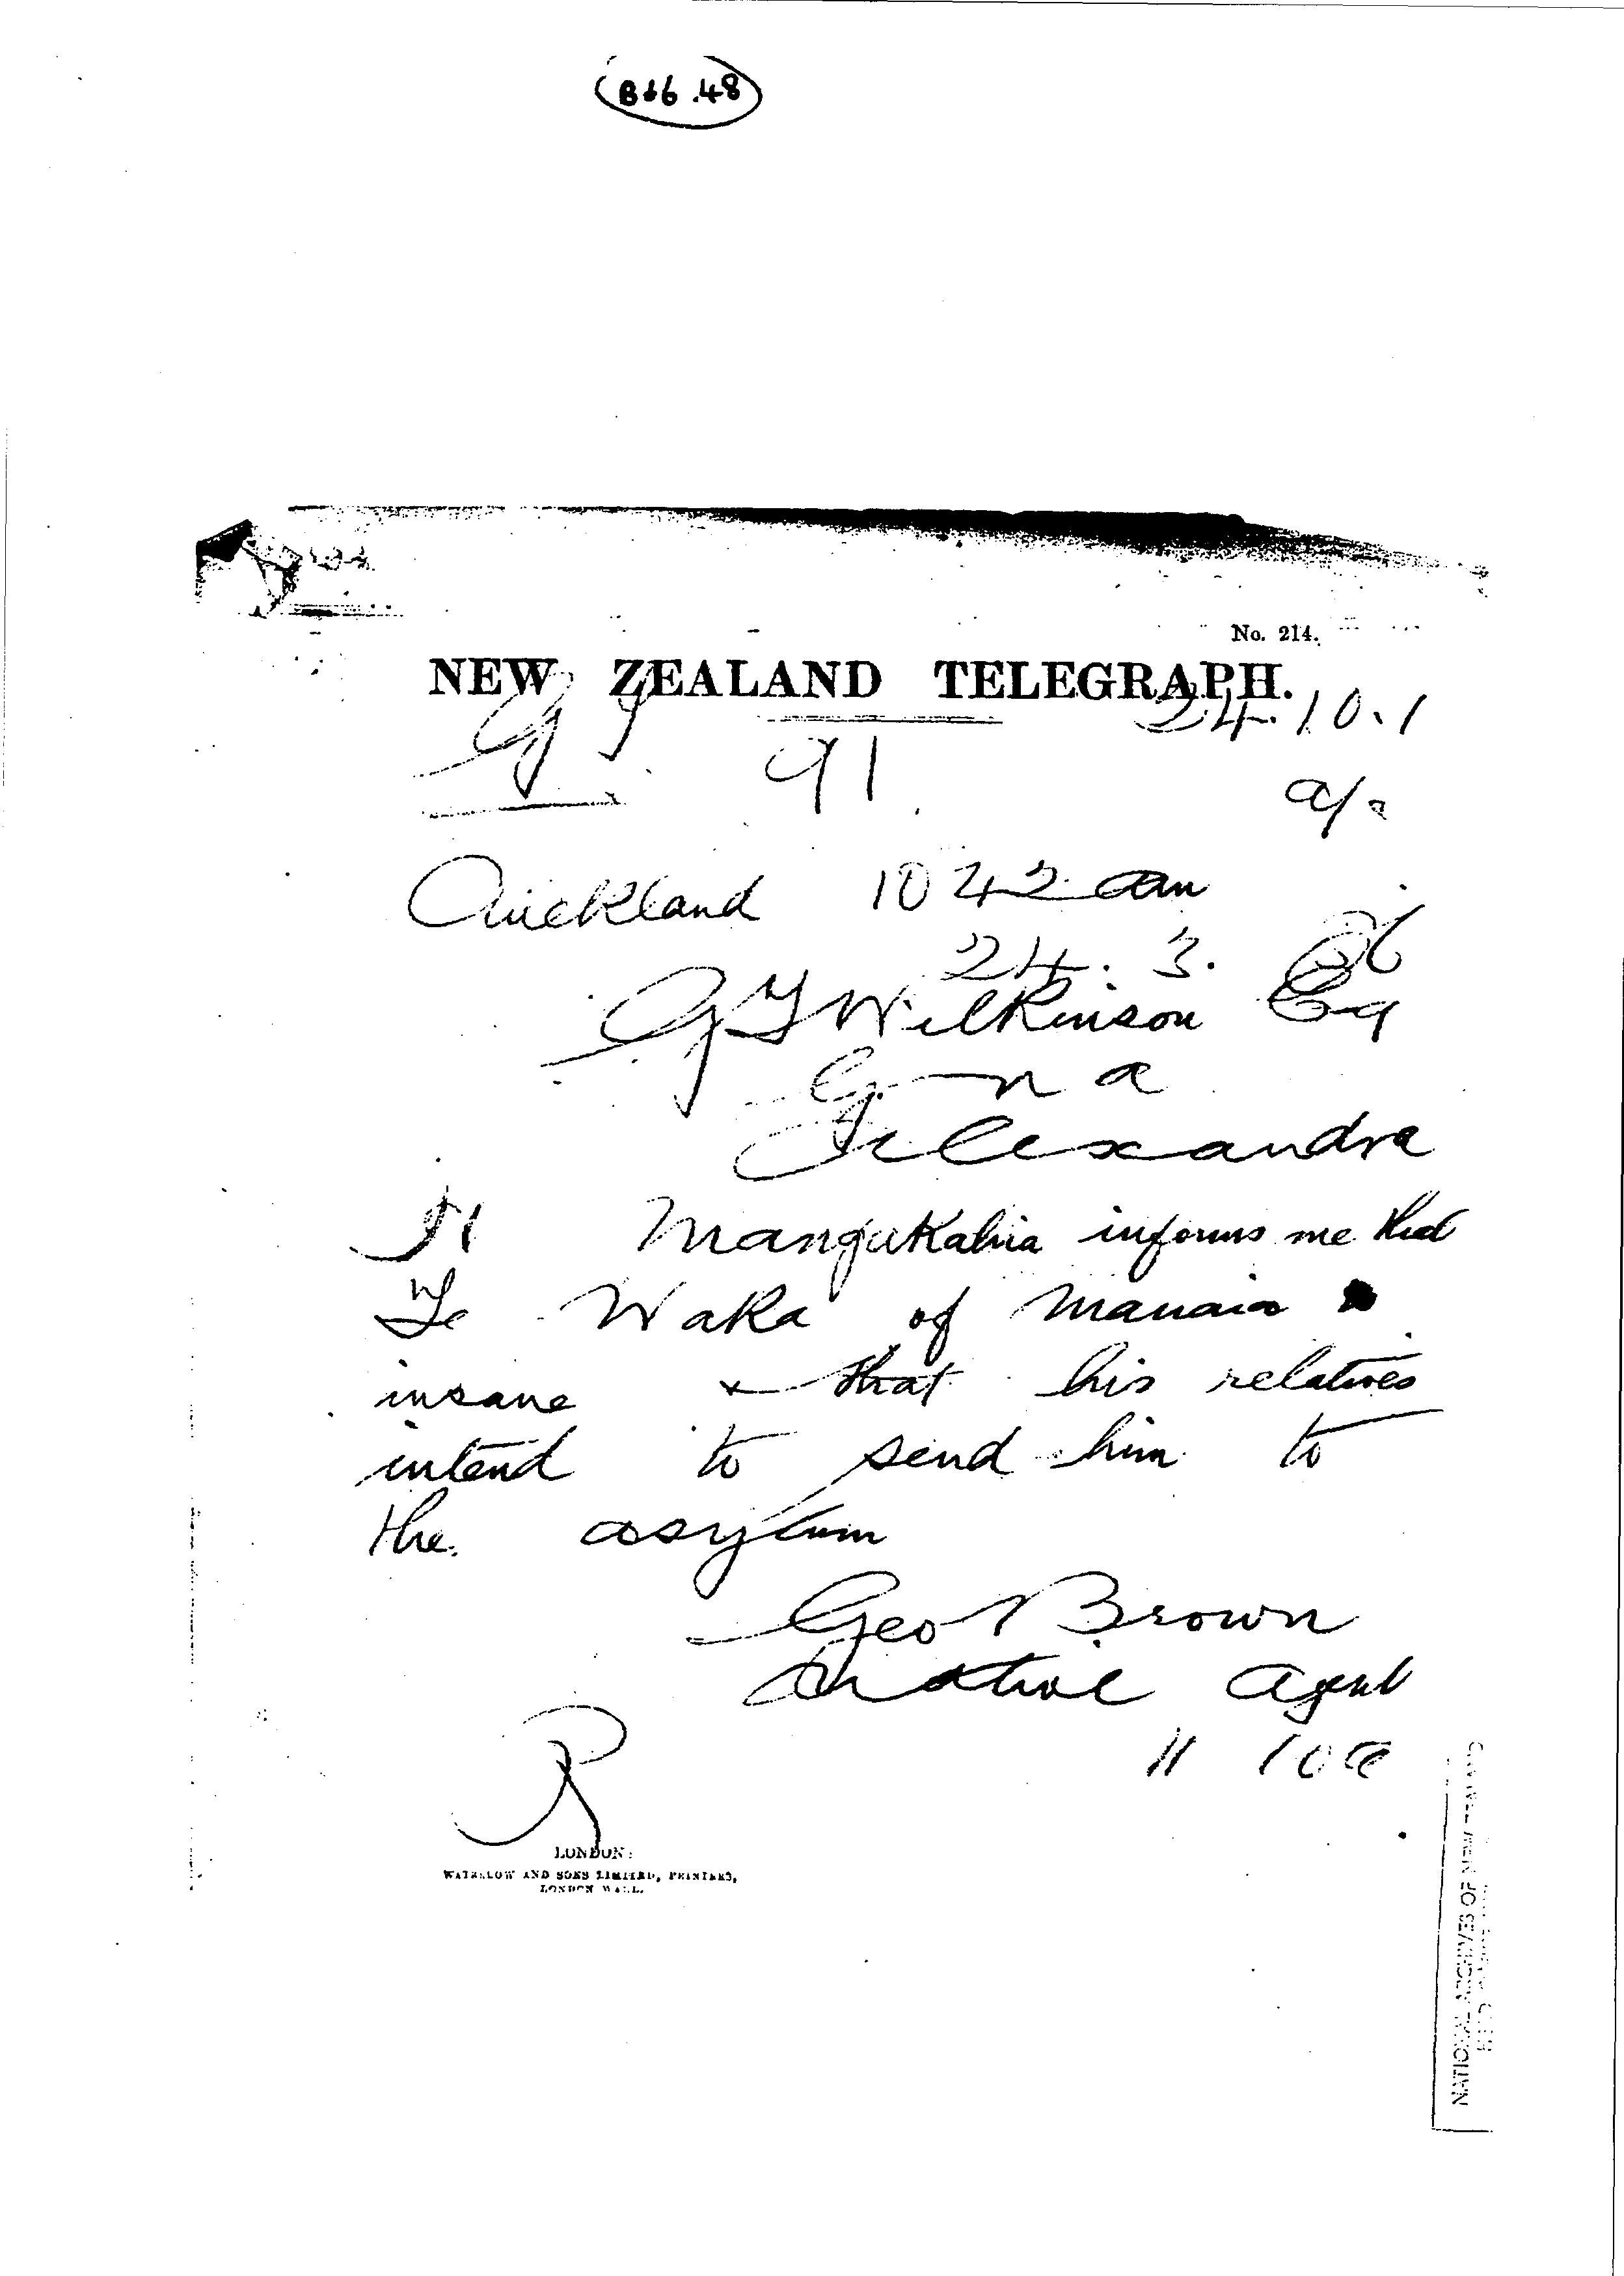 B&6.48
No. 214.
NEW ZEALAND TELEGRAPH.
24.10.1
91
Auckland 10 42 am
24. 3. 86
G T Wilkinson Esq
G n a
Alexandra
H Mangakahia informs me that
Te Waka of Manaia
insane & that his relatives
intend to send him to
the asylum
Geo T Brown
Native Agent
11 10a
R
LONDON:
WATERLOW AND SONS LIMITED, PRINTERS,
LONDON WALL.
NATIONAL ARCHIVES OF NEW ZEALAND